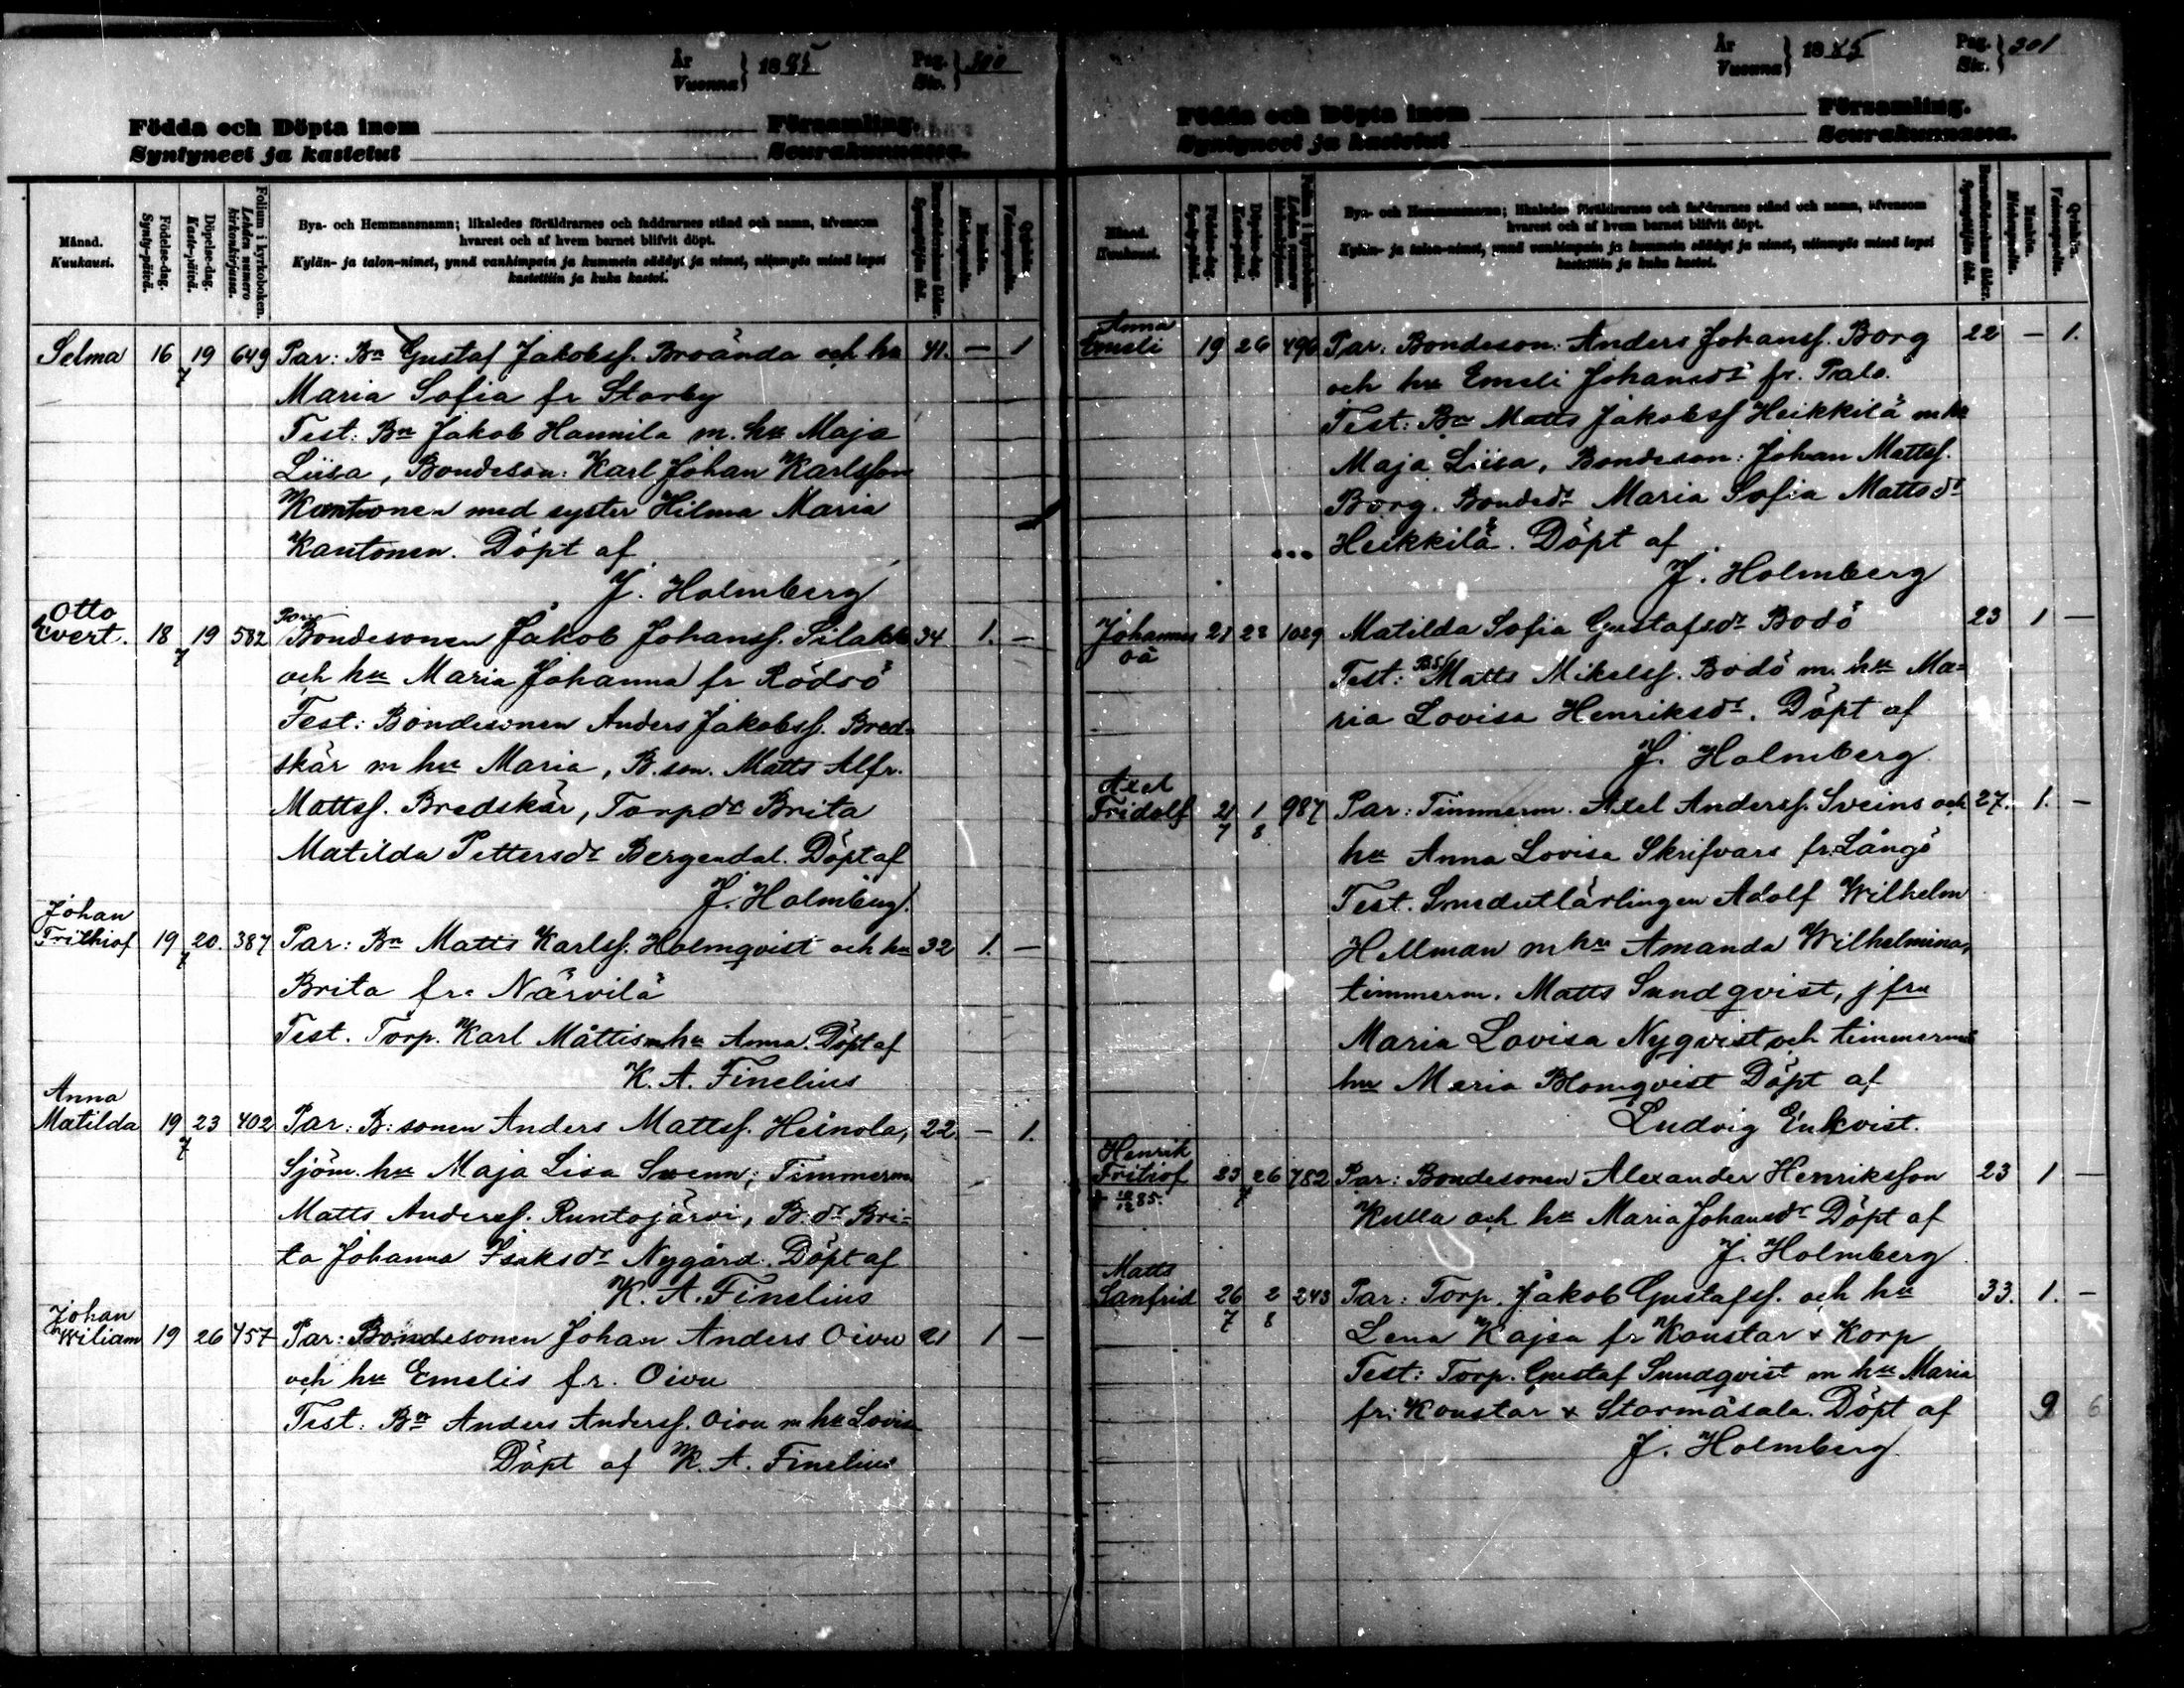 År
Vuonna } 1885 Pag.
Siv. } 300
Födda och Döpta inom Församling.
Syntyneet ja kastetut Seurakunnassa.
Månad.
Kuukausi.
Födelse-dag.
Synty-päivä.
Döpelse-dag.
Kaste-päivä.
Folium i kyrkoboken.
Lehden numero
kirkonkirjassa.
Bya- och Hemmansnamn; likaledes föräldrarnes och faddrarnes stånd och namn, äfvensom
hvarest och af hvem barnet blifvit döpt.
Kylän- ja talon-nimet, ynnä vanhimpain ja kummein säädyt ja nimet, niinmyös missä lapsi
kastettiin ja kuka kastoi.
Barnaföderskans ålder.
Synnyttäjän ikä.
Mankön.
Miehenpuolia.
Qvinkön.
Vaimonpuolia.
Selma 16/7 19 649 Par: Bn Gustaf Jakobsf. Broända och hu 41. — 1
Maria Sofia fr Storby
Test: Bn Jakob Hannila m. hu Maja
Liisa, Bondeson: Karl Johan Karlsson
Kantonen med syster Hilma Maria
Kantonen. Döpt af
J. Holmberg
Otto
Evert. 18/7 19 582 Bondesonen Jakob Johansf. Silakka 34 1. —
och hu Maria Johanna fr Rödsö
Test: Bondesonen Anders Jakobsf. Bred=
skär m hu Maria, B. son. Matts Alfr.
Mattsf. Bredskär, Torpdr Brita
Matilda Pettersdr Bergendal. Döpt af
J. Holmberg.
Johan
Frithiof 19/7 20. 387 Par: Bn Matts Karlsf. Holmqvist och hu 32 1. —
Brita fr. Närvilä
Test. Torp. Karl Mattis m hu Anna. Döpt af
K. A. Finelius
Anna
Matilda 19/7 23 402 Par: B: sonen Anders Mattsf. Heinola, 22 — 1.
Sjöm. hu Maja Lisa Svenn; Timmerm
Matts Andersf. Runtojärvi, B. dr Bri=
ta Johanna Isaksdr Nygård. Döpt af
K. A. Finelius
Johan
Wiliam 19 26 457 Par: Bondesonen Johan Anders Oivu 21 1 —
och hu Emelis fr. Oivu
Test: Bn Anders Andersf. Oivu m hu Lovisa
Döpt af K. A. Finelius
År
Vuonna } 1885 Pag.
Siv. } 301
Födda och Döpta inom Församling.
Syntyneet ja kastetut Seurakunnassa.
Månad.
Kuukausi.
Födelse-dag.
Synty-päivä.
Döpelse-dag.
Kaste-päivä.
Folium i kyrkoboken.
Lehden numero
kirkonkirjassa.
Bya- och Hemmansnamn; likaledes föräldrarnes och faddrarnes stånd och namn, äfvensom
hvarest och af hvem barnet blifvit döpt.
Kylän- ja talon-nimet, ynnä vanhimpain ja kummein säädyt ja nimet, niinmyös missä lapsi
kastettiin ja kuka kastoi.
Barnaföderskans ålder.
Synnyttäjän ikä.
Mankön.
Miehenpuolia.
Qvinkön.
Vaimonpuolia.
Anna
Emeli 19 26 496 Par: Bondeson: Anders Johansf. Borg 22 — 1.
och hu Emeli Johansdr fr. Palo.
Test: Bn Matts Jakobsf Heikkilä m hu
Maja Liisa, Bondeson: Johan Mattsf.
Borg. Bondedr Maria Sofia Mattsdr
Heikkilä. Döpt af
J. Holmberg
Johannes 21 23 1029 Matilda Sofia Gustafsdr Bodö 23 1 —
oä
Test: Bs Matts Mikelsf. Bodö m. hu Ma=
ria Lovisa Henriksdr. Döpt af
J. Holmberg
Axel
Fridolf 21/7 1/8 987 Par: Timmerm. Axel Andersf. Sveins och 27. 1. —
hu Anna Lovisa Skrifvars fr. Långö
Test. Smedutlärlingen Adolf Wilhelm
Hellman m hu Amanda Wilhelmina,
timmerm. Matts Sundqvist, jfru
Maria Lovisa Nyqvist och timmerms
hu Maria Blomqvist Döpt af
Ludvig Enkvist.
Henrik
Fritiof 23/7 26 782 Par: Bondesonen Alexander Henriksson 23 1 —
+ 10/12 85.
Kulla och hu Maria Johansdr Döpt af
J. Holmberg
Matts
Sanfrid 26/7 2/8 243 Par: Torp. Jakob Gustafsf. och hu 33. 1. —
Lena Kajsa fr Koustar & Korp
Test: Torp. Gustaf Sundqvist m hu Maria
fr. Koustar & Stormåsala. Döpt af 9 6
J. Holmberg.